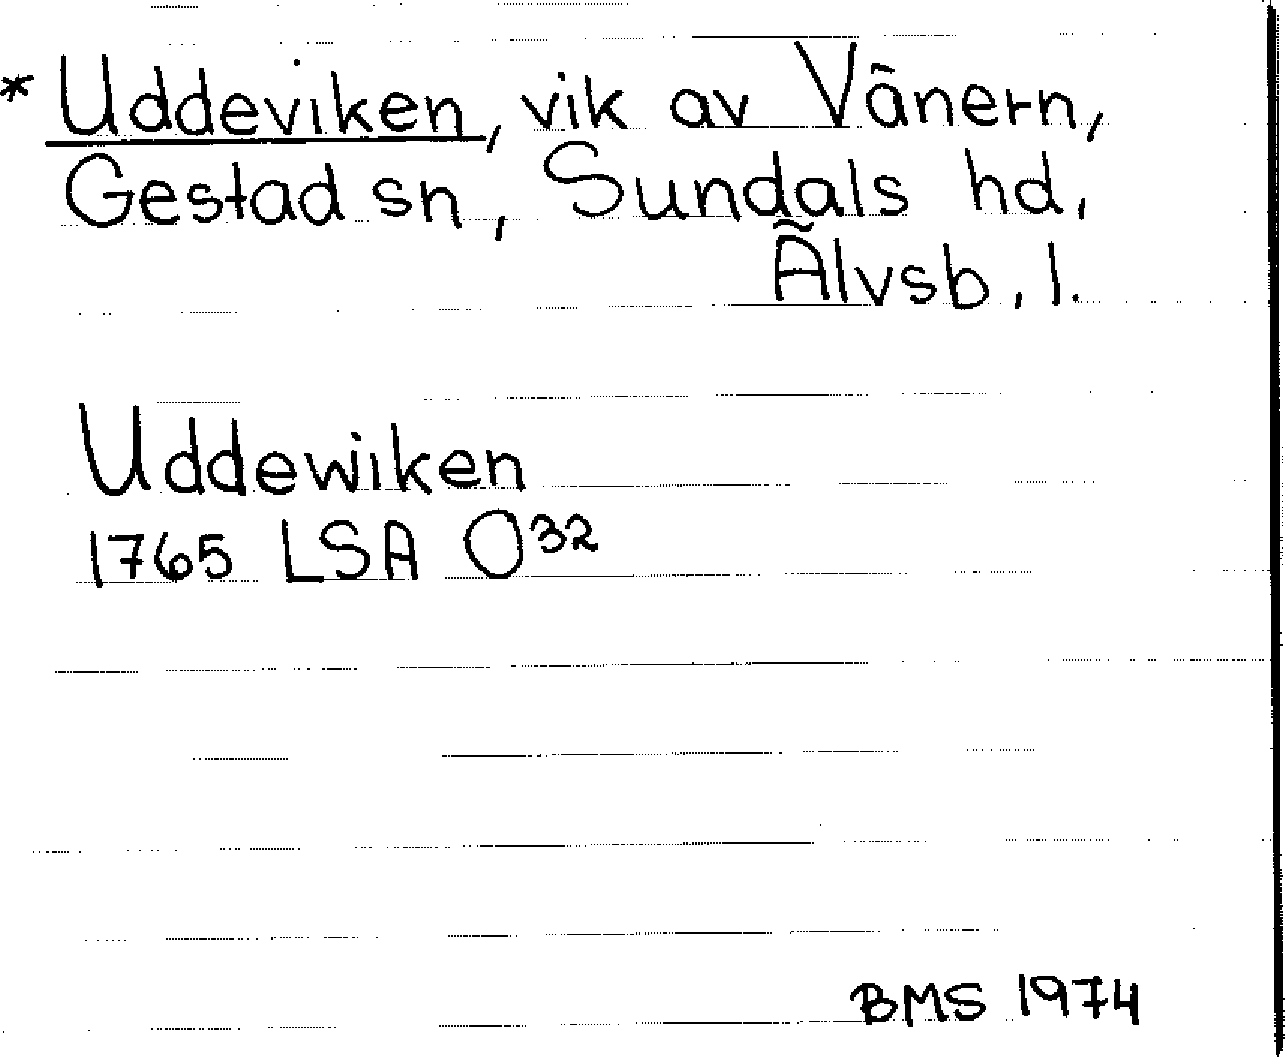 * Uddeviken, vik av Vänern,
Gestad sn, Sundals hd,
Älvsb. l.
Uddewiken
1765 LSA O32
BMS 1974